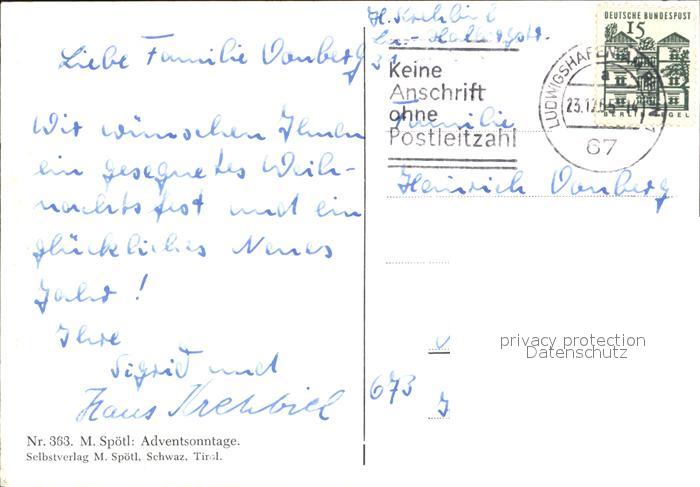 Liebe Familie Vonberg
Wir wünschen Ihnen
ein gesegnetes Weih-
nachtsfest und ein
glückliches Neues
Jahr!
Ihre
Sigrid und
Hans Krehbiel
Nr. 363. M. Spötl: Adventsonntage.
Selbstverlag M. Spötl, Schwaz, Tirol.
H. Krehbiel
31
Keine
Anschrift
ohne
Postleitzahl
LUDWIGSHAFEN
23.12.65-14
67
DEUTSCHE BUNDESPOST
15
BERLIN TEGEL
Familie
Heinrich Vonberg
673
privacy protection
Datenschutz